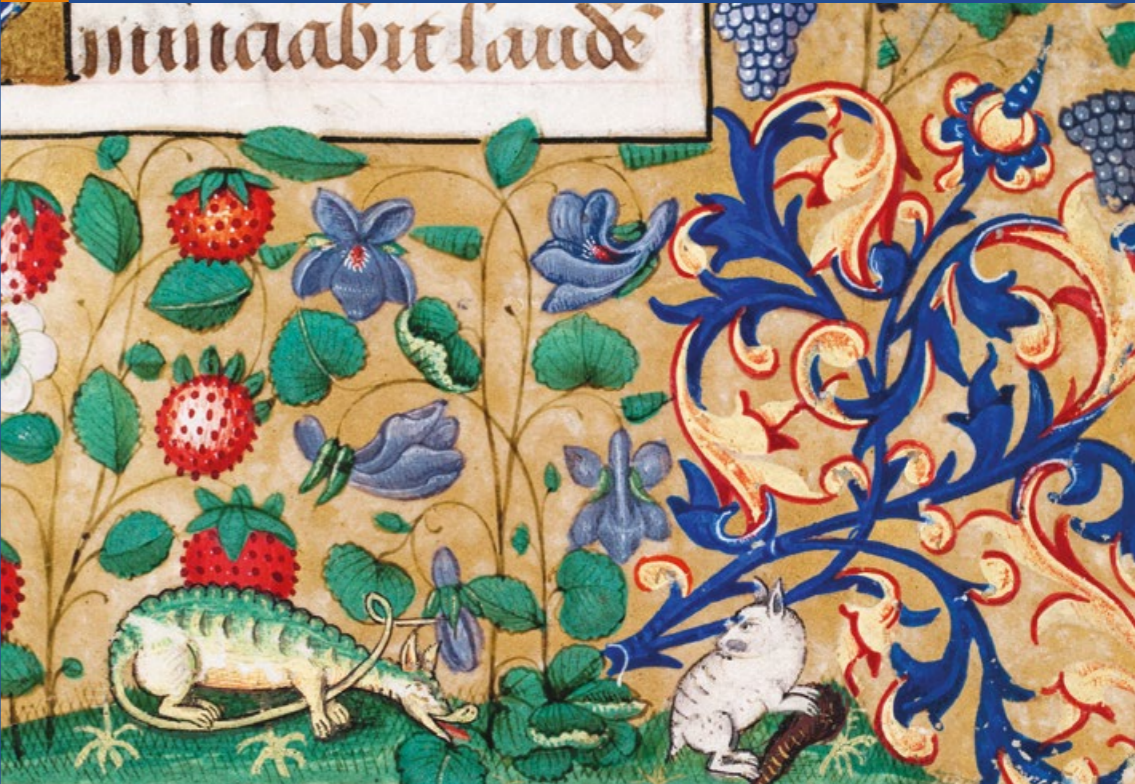 nunciabit laudē